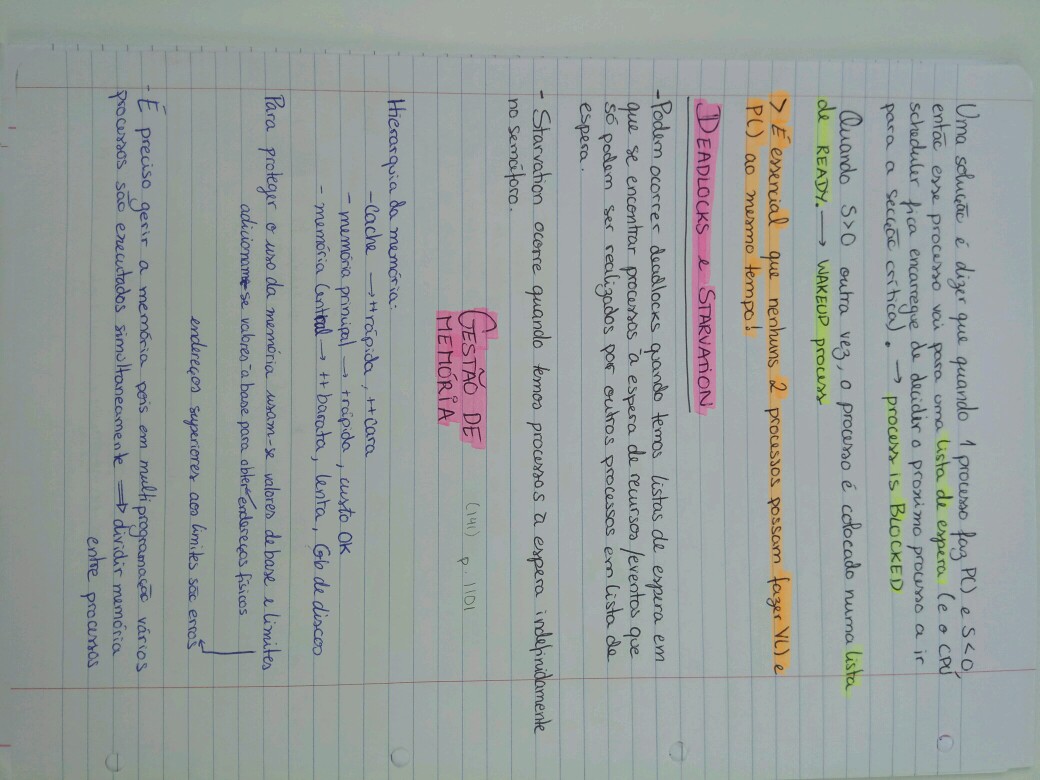 Uma solução é dizer que quando 1 processo faz P() e S<0,
então esse processo vai para uma lista de espera (e o CPU
scheduler fica encarregue de decidir o proximo processo a ir
para a secção crítica). → process is BLOCKED
Quando S>0 outra vez, o processo é colocado numa lista
de READY. → WAKEUP process
> É essencial que nenhuns 2 processos possam fazer V() e
P() ao mesmo tempo!
DEADLOCKS e STARVATION
- Podem ocorrer deadlocks quando temos listas de espera em
que se encontrar processos à espera de recursos/eventos que
só podem ser realizados por outros processos em lista de
espera.
- Starvation ocorre quando temos processos à espera indefinidamente
no semáforo.
GESTÃO DE
MEMÓRIA
(141) p. 1101
Hierarquia da memória:
- Cache → ++rápida, ++cara
- memória principal → +rápida, custo OK
- memória Central → ++ barata, lenta, Gb de discoo
Para proteger o uso da memória usam-se valores de base e limites
adicionam-se valores à base para obter endereços físicos
endereços superiores aos limites são erros
- É preciso gerir a memória pois em multiprogramação vários
processos são executados simultaneamente ⇒ dividir memória
entre processos